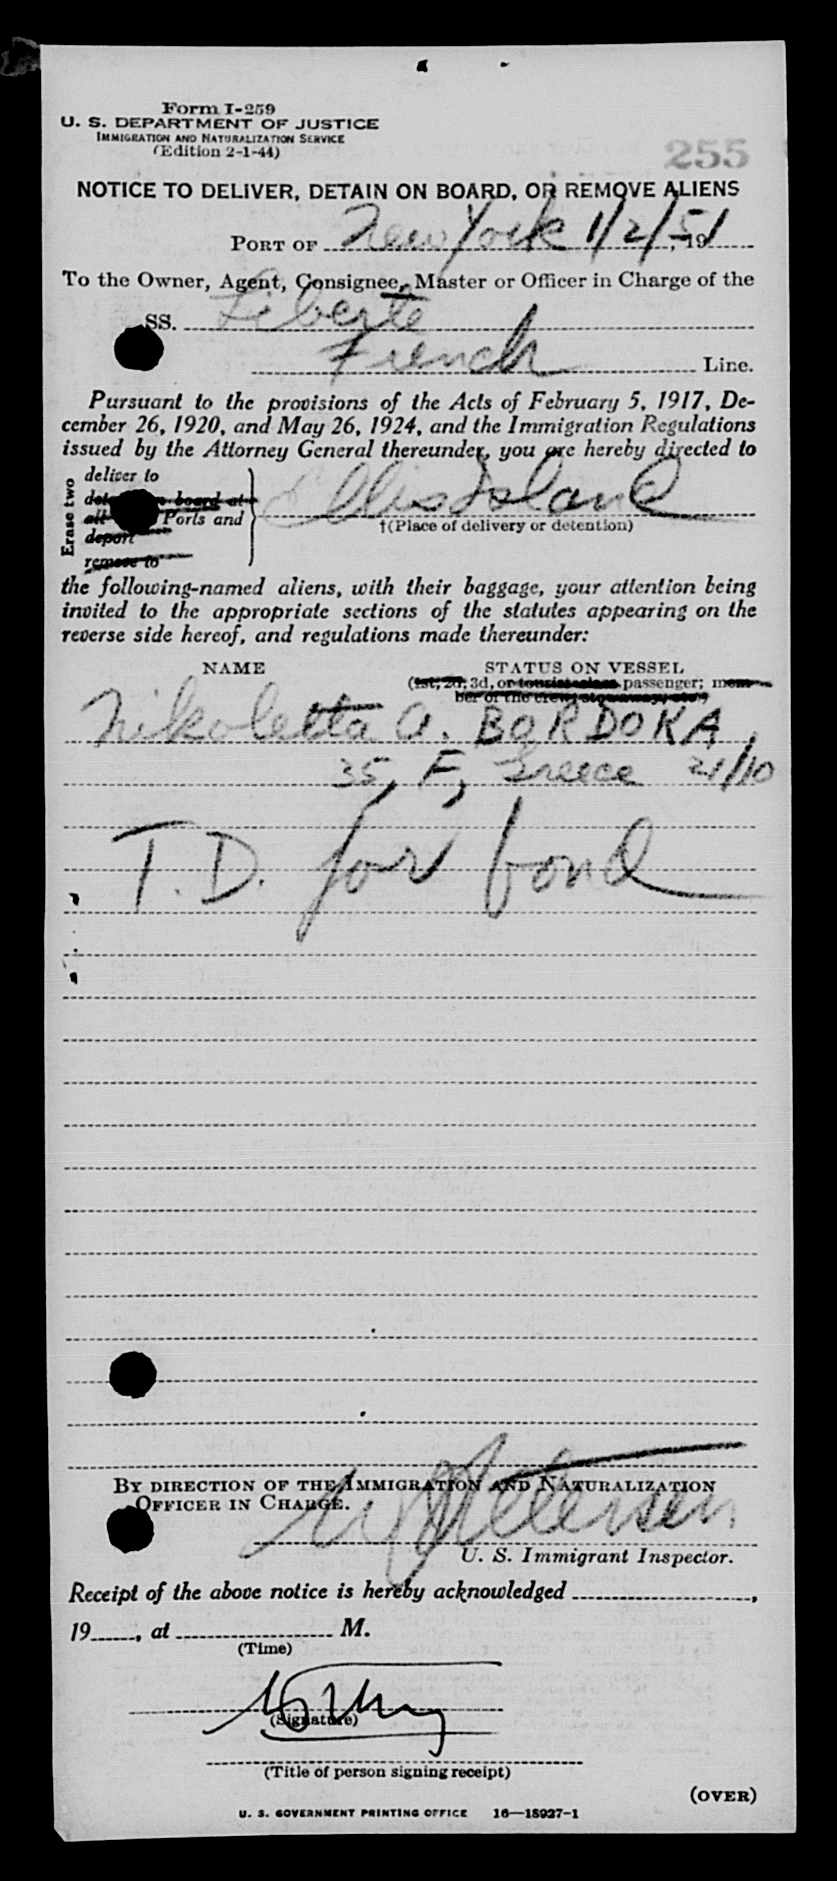 Form I-259
U. S. DEPARTMENT OF JUSTICE
IMMIGRATION AND NATURALIZATION SERVICE
(Edition 2-1-44)
255
NOTICE TO DELIVER, DETAIN ON BOARD, OR REMOVE ALIENS
PORT OF New York 1/2/51, 19
To the Owner, Agent, Consignee, Master or Officer in Charge of the
SS. Liberte
French Line.
Pursuant to the provisions of the Acts of February 5, 1917, De-
cember 26, 1920, and May 26, 1924, and the Immigration Regulations
issued by the Attorney General thereunder, you are hereby directed to
Erase two
deliver to
board at
all Ports and
deport
remove to
Ellis Island
†(Place of delivery or detention)
the following-named aliens, with their baggage, your attention being
invited to the appropriate sections of the statutes appearing on the
reverse side hereof, and regulations made thereunder:
NAME STATUS ON VESSEL
(1st, 2d, 3d, or tourist-class passenger; mem-
ber of the crew, stowaway, etc.)
Nikoletta A. BORDOKA,
35, F, Greece 21/10
T.D. for bond
BY DIRECTION OF THE IMMIGRATION AND NATURALIZATION
OFFICER IN CHARGE.
Petersen
U. S. Immigrant Inspector.
Receipt of the above notice is hereby acknowledged ,
19 , at M.
(Time)
(Signature)
(Title of person signing receipt)
(OVER)
U. S. GOVERNMENT PRINTING OFFICE 16—18927-1